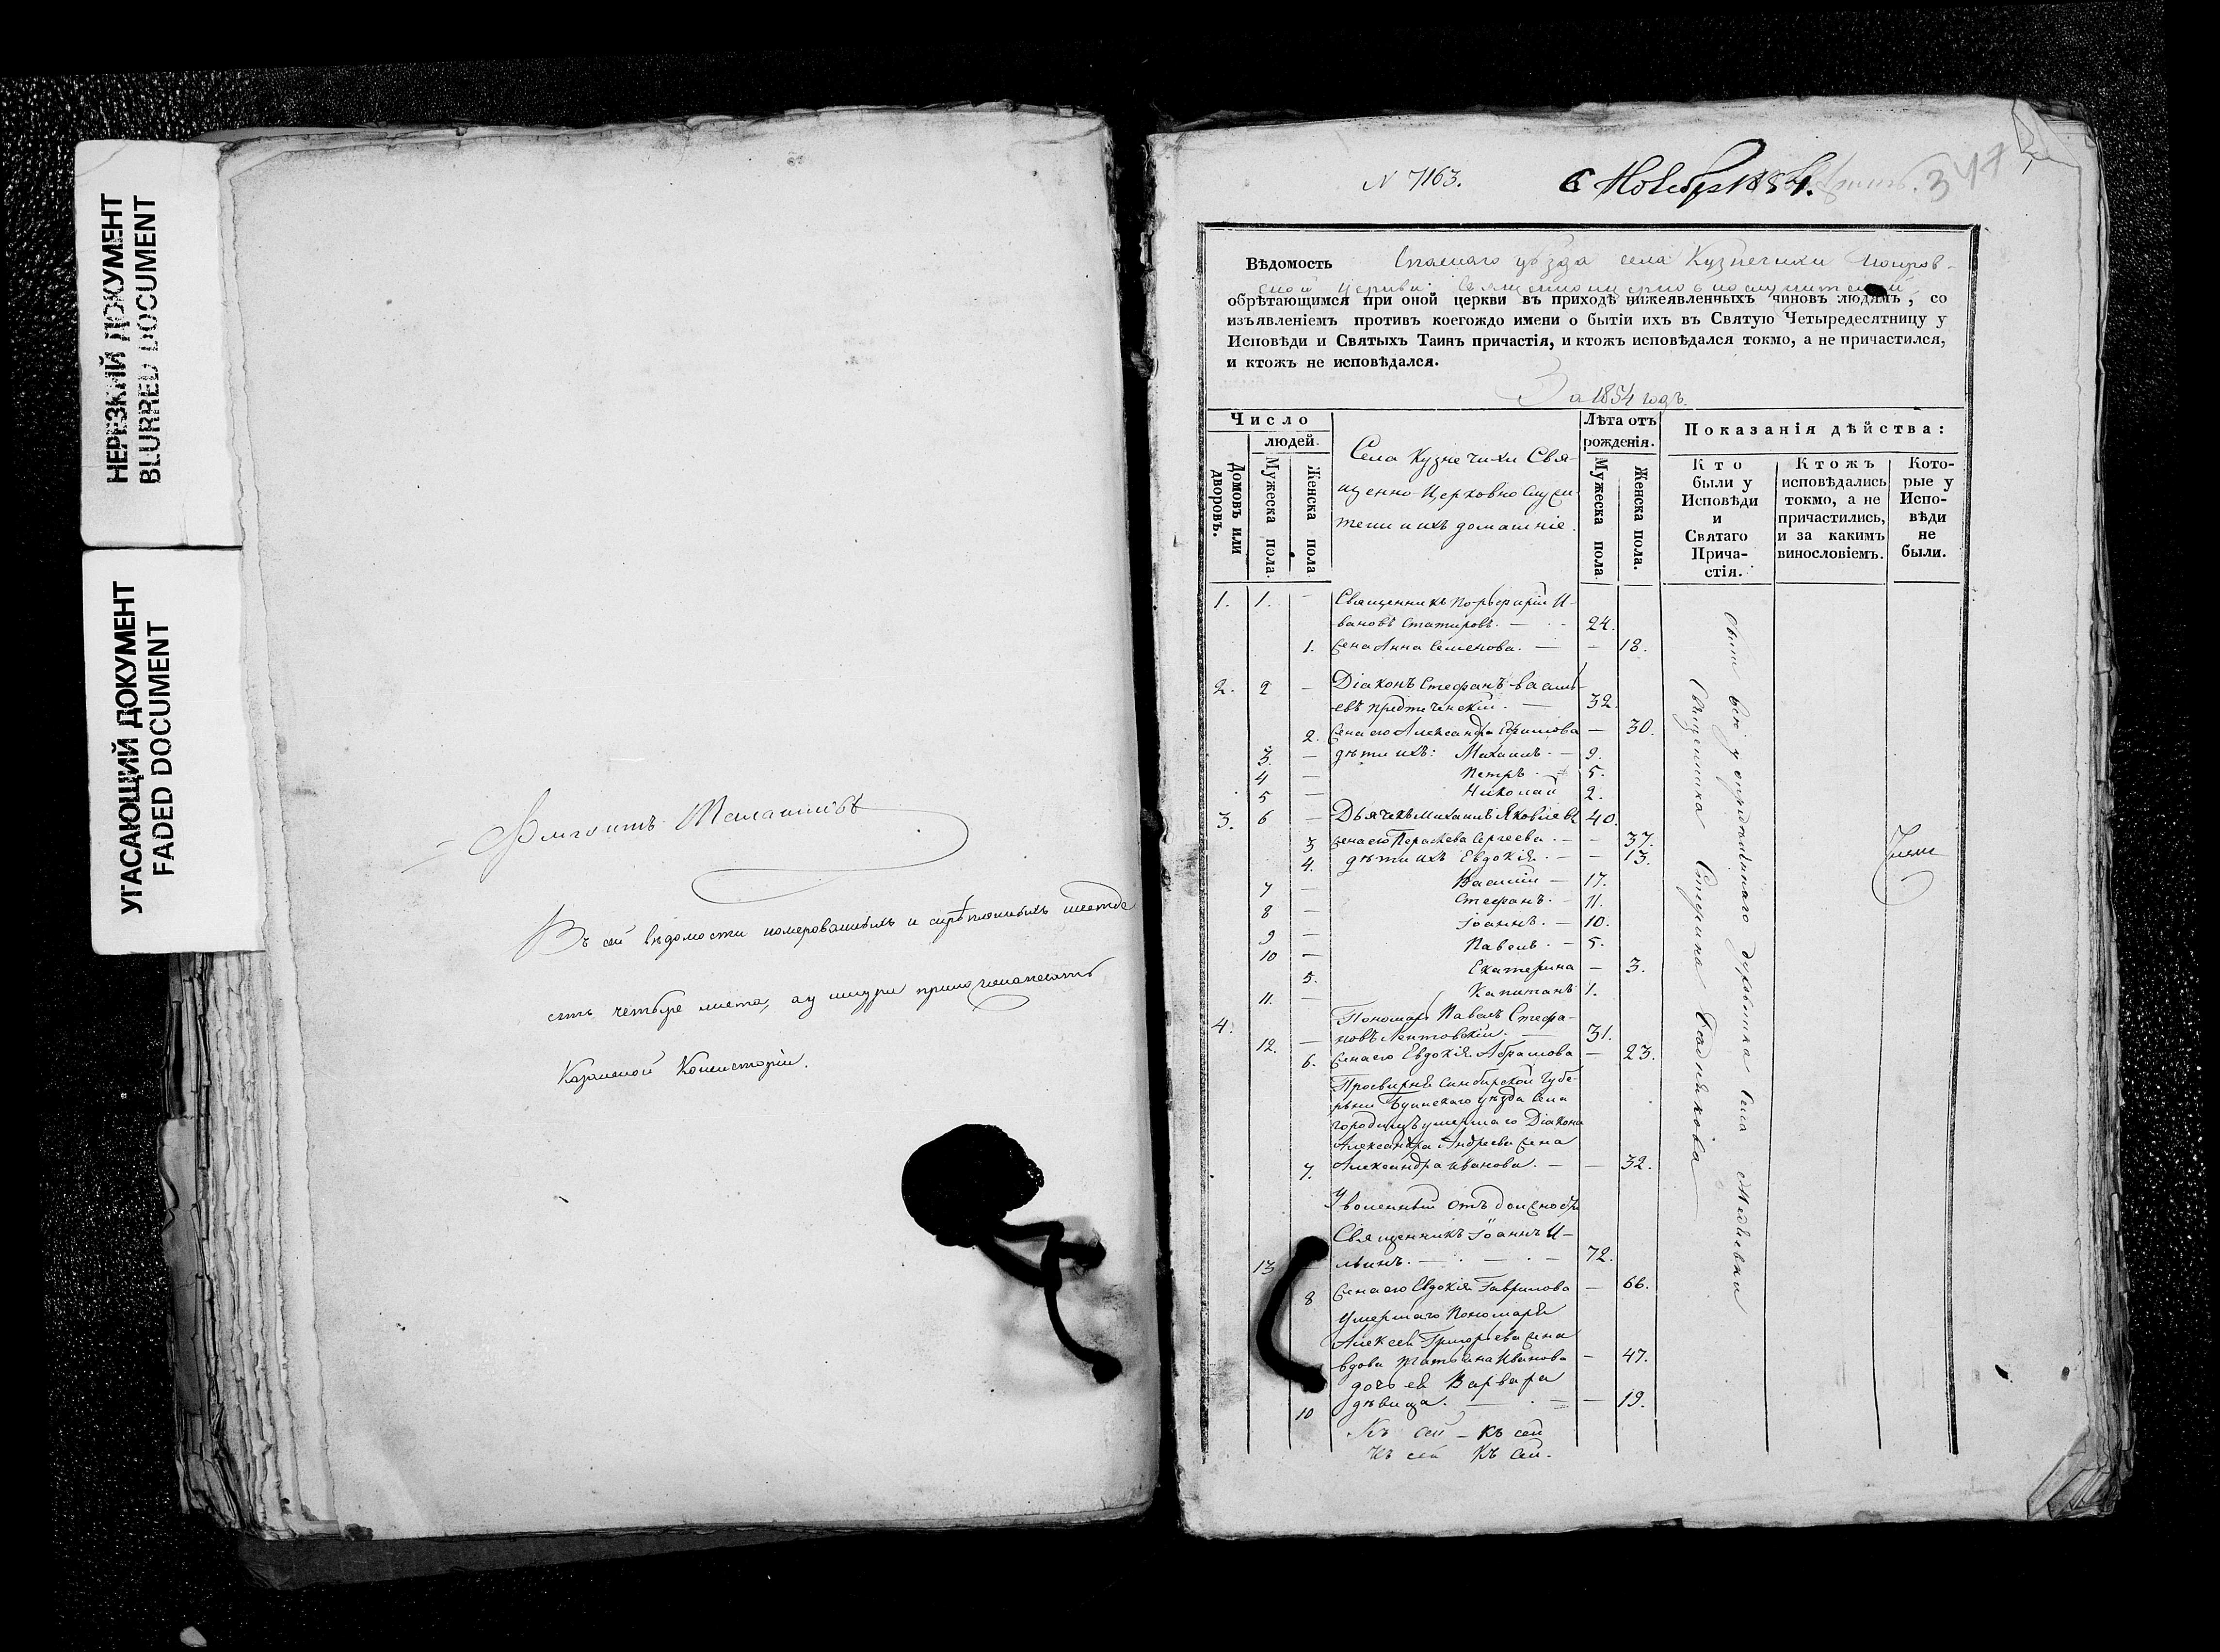 НЕРЕЗКИЙ ДОКУМЕНТ
BLURRED DOCUMENT
УГАСАЮЩИЙ ДОКУМЕНТ
FADED DOCUMENT
Въ сей вѣдомости номерованныхъ и скрѣпленныхъ шестьде
сятъ четыре листа, а у шнура приложена печать
Казанской Консисторіи.
N 7163.
6 Ноября 1854.
347
Вѣдомость Спаскаго уѣзда села Кузнечихи Покров-
ской церкви Священноцерковнослужителей
обрѣтающимся при оной церкви въ приходѣ нижеявленныхъ чиновъ людямъ, со
изъявленіемъ противъ коегождо имени о бытіи ихъ въ Святую Четыредесятницу у
Исповѣди и Святыхъ Таинъ причастія, и ктожъ исповѣдался токмо, а не причастился,
и ктожъ не исповѣдался.
За 1854 годъ.
Число
людей.
Домовъ или дворовъ.
Мужеска пола.
Женска пола
Села Кузнечихи Свя-
щенно-Церковнослужи-
тели и ихъ домашніе.
Лѣта отъ
рожденія.
Мужеска пола
Женска пола.
Показанія дѣйства:
Кто
были у
Исповѣди
и
Святаго
Прича-
стія.
Ктожъ
исповѣдались
токмо, а не
причастились,
и за какимъ
винословіемъ.
Кото-
рые у
Испо-
вѣди
не
были.
1. 1. – Священникъ Порфирій И-
вановъ Статировъ. – 24.
1. Жена Анна Семенова. – – 18.
2. 2 – Діаконъ Стефанъ Василь-
евъ Предтеченскій. – 32.
2. Жена его Александра Ефимова – 30.
3. – дѣти ихъ: Михаилъ. – 9.
4 – Петръ. – 5.
5 – Николай 2.
3. 6 – Дьячекъ Михаилъ Яковлевъ 40.
3 Жена его Параскева Сергеева. – – 37.
4. дѣти ихъ Евдокія. – – 13.
7 – Василій – 17.
8 – Стефанъ. – 11.
9 – Іоаннъ. – 10.
10 – Павелъ. – 5.
5. Екатерина – 3.
11. – Капитанъ 1.
4. Пономарь Павелъ Стефа-
12. – новъ Лентовскій. – 31.
6. Жена его Евдокія Абрамова – 23.
Просвирня Симбирской Губе-
рніи Буинскаго уѣзда Села
Городищъ умершаго Діакона
Александра Андреева жена
7. Александра Иванова. – – 32.
Уволенный отъ должности
Священникъ Іоаннъ И-
13 – льинъ. – 72.
8 Жена его Евдокія Гаврилова – 66.
умершаго Пономаря
Алексея Григорьева жена
вдова Татьяна Иванова – 47.
дочь ея Варвара
10 дѣвица. – – 19.
Къ сей – Къ сей
Къ сей Къ сей.
села
Священника